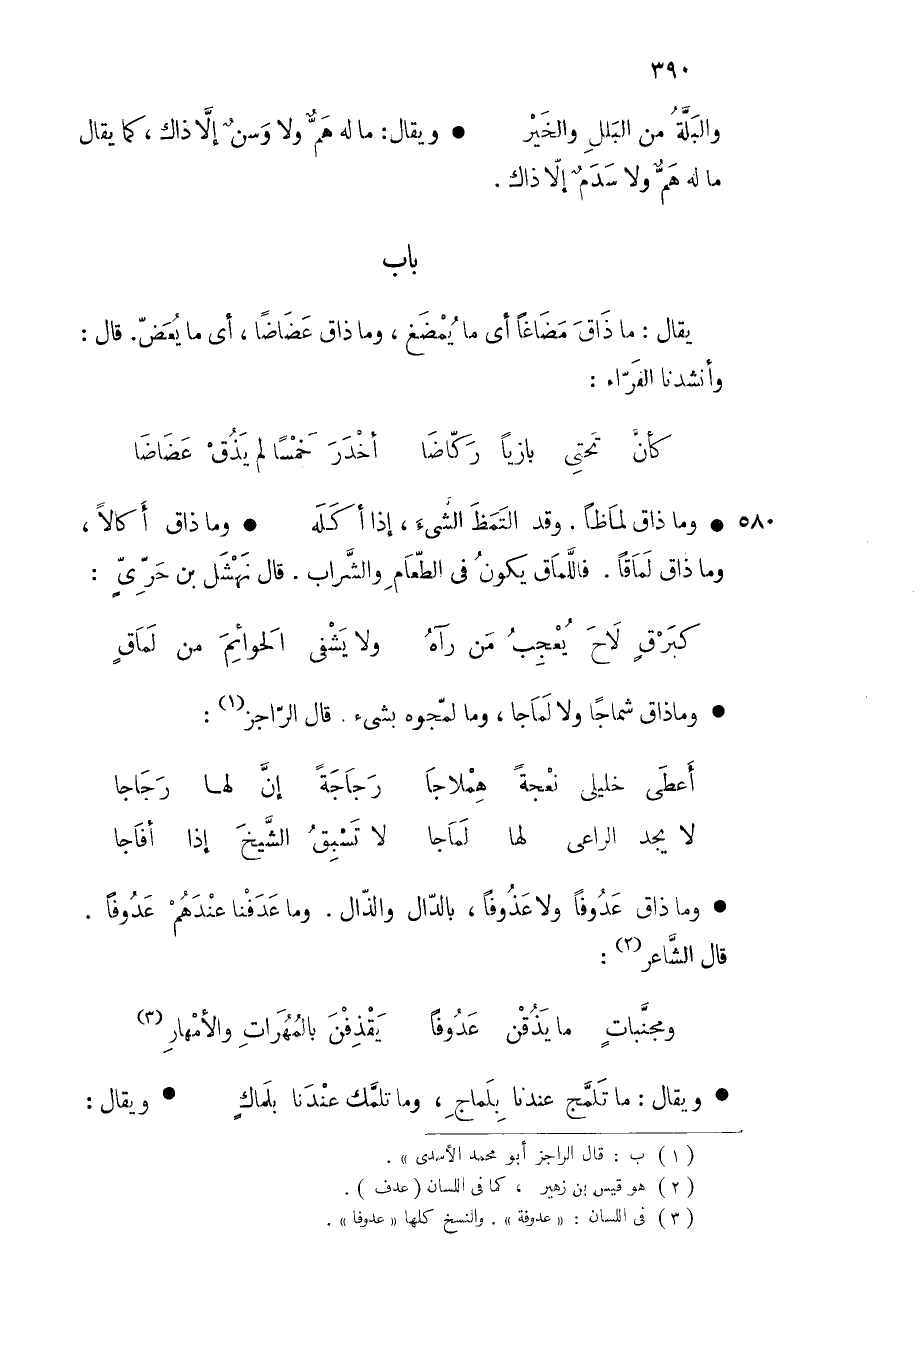 ٣٩٠
والبَلَّةُ من البَلَلِ والخَيْر ● ويقال: ما له هَمٌّ ولا وَسنٌ إلَّا ذاك، كما يقال
ما له هَمٌّ ولا سَدَمٌ إلَّا ذاك .
باب
يقال : ما ذَاقَ مَضَاغًا أى ما يُمْضَغ ، وما ذاق عَضَاضًا ، أى ما يُعَضّ. قال :
وأنشدنا الفَرّاء :
كأنَّ تَحتِى بازياً رَكّاضَا أخْدَرَ خَمْسًا لم يَذُقْ عَضَاضَا
٥٨٠ ● وما ذاق لَمَاظاً . وقد التَمَظَ الشَّىءَ ، إذا أكَلَه ● وما ذاق أَكالاً ،
وما ذاق لَمَاقاً . فاللَّماق يكونُ فى الطَّعامِ والشَّراب . قال نَهْشَل بن حَرِّىٍّ :
كبَرْقٍ لَاحَ يُعْجِبُ مَن رآهُ ولا يَشْفى الحوائِمَ من لَمَاقٍ
● وماذاق شماجًا ولا لَمَاجا ، وما لمّجوه بشىء . قال الرّاجز(١) :
أَعطَى خليلى نعْجةً هِمْلاجاَ رَجَاجَةً إنَّ لها رَجَاجا
لا يجد الراعى لها لَمَاجا لا تَسْبِقُ الشَّيخَ إذا أفَاجا
● وما ذاق عَدُوفاً ولا عَذُوفاً ، بالدّال والذّال . وما عَدَفْنا عنْدَهُمْ عَدُوفاً .
قال الشَّاعر(٢) :
ومجنَّباتٍ ما يَذُقْن عَدُوفاً يَقْذِفْنَ بالمُهَرَاتِ والأمْهارِ(٣)
● ويقال : ما تَلَمَّج عندنا بِلَماجٍ ، وما تلمَّك عنْدَنا بلَماكٍ ● ويقال :
(١) ب : قال الراجز أبو محمد الأسدى » .
(٢) هو قيس بن زهير ، كما فى اللسان ( عدف ) .
(٣) فى اللسان : « عدوفة » . والنسخ كلها « عدوفا » .